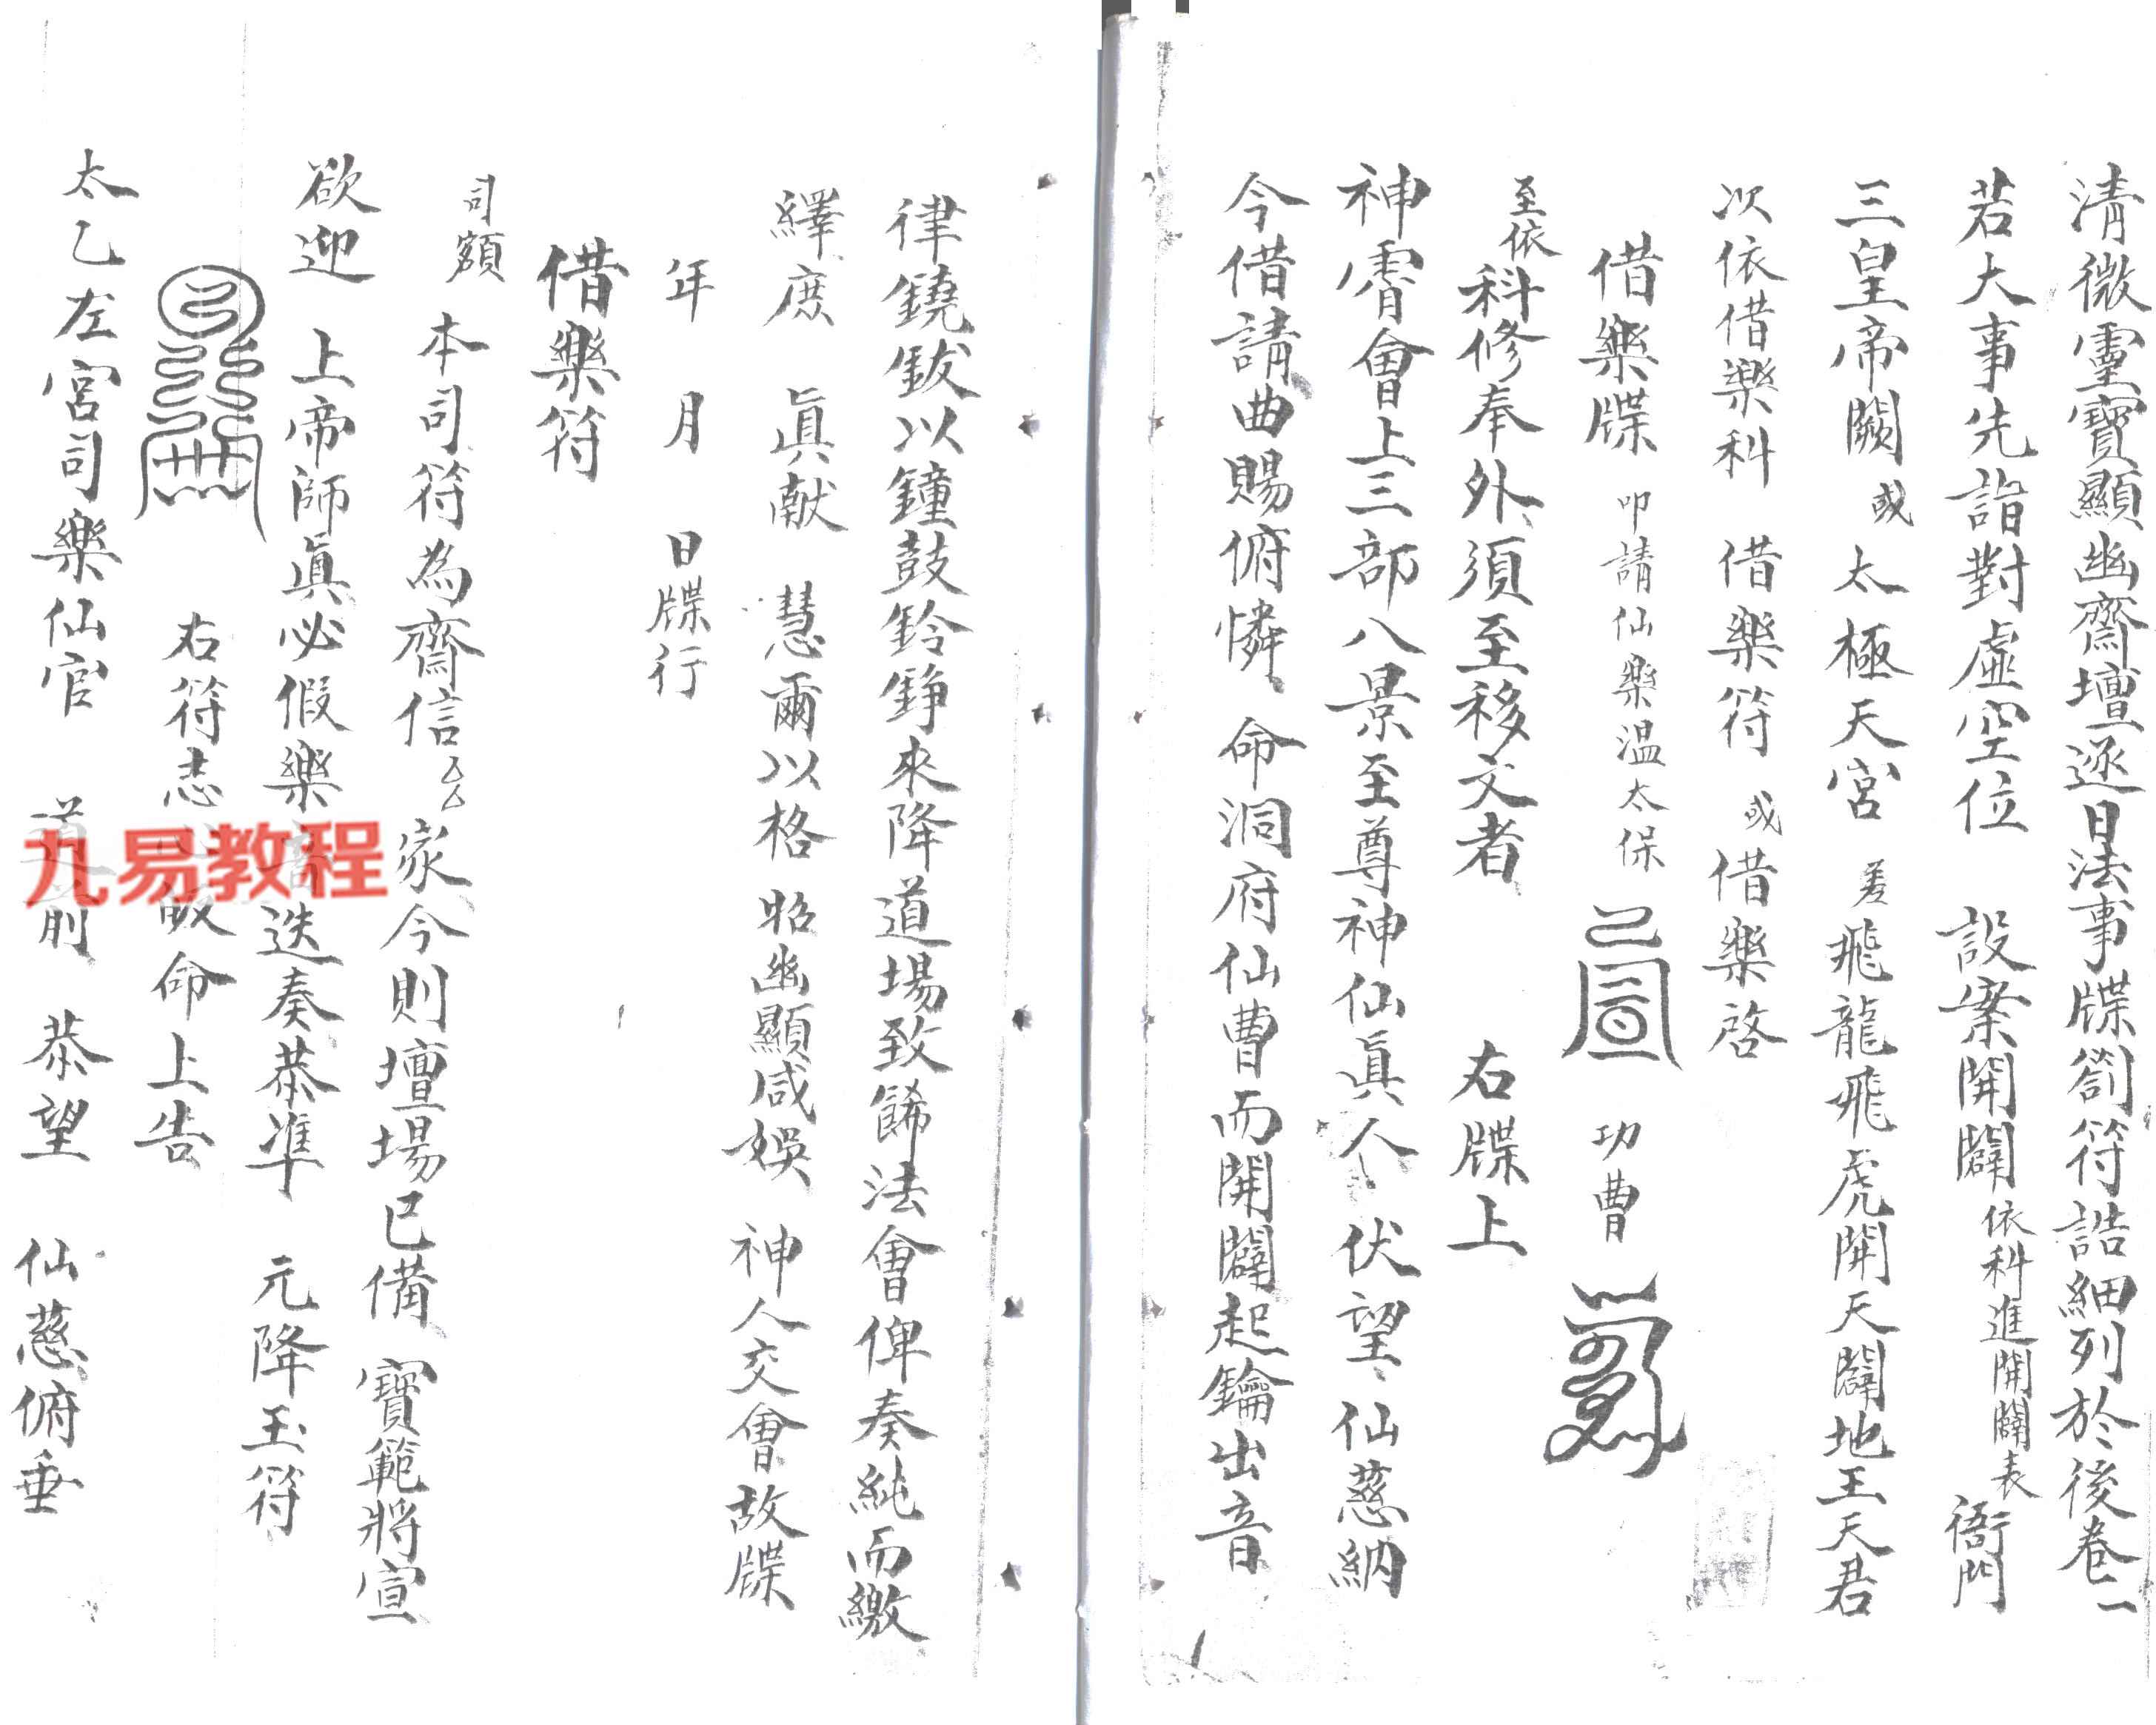 清微靈寶顯幽齋壇逐日法事牒劄符誥細列於後卷一
若大事先詣對虛空位 設案開闢 依科進開闢表 衙門
三皇帝闕 或 太極天宮 飛龍飛虎開天闢地王天君
次依借樂科 借樂符 或 借樂啓
借樂牒 叩請仙樂溫太保 功曹
至依科修奉外須至移文者 右牒上
神霄會上三部八景至尊神仙眞人 伏望 仙慈納
今借請曲賜俯憐 命洞府仙曹而開闢起鑰出音
律鐃鈸以鐘鼓鈴錚來降道場致餙法會俾奏純而繳
繹庶 眞献 慧爾以格 昭幽顯咸娛 神人交會故牒
年 月 日牒行
借樂符
司額 本司符為齋信 家今則壇場已備 寶範將宣
欲迎 上帝師眞必假樂音迭奏恭準 元降玉符
右符志 皈命上告
太乙左宮司樂仙官 道前 恭望 仙慈俯垂
九易教程